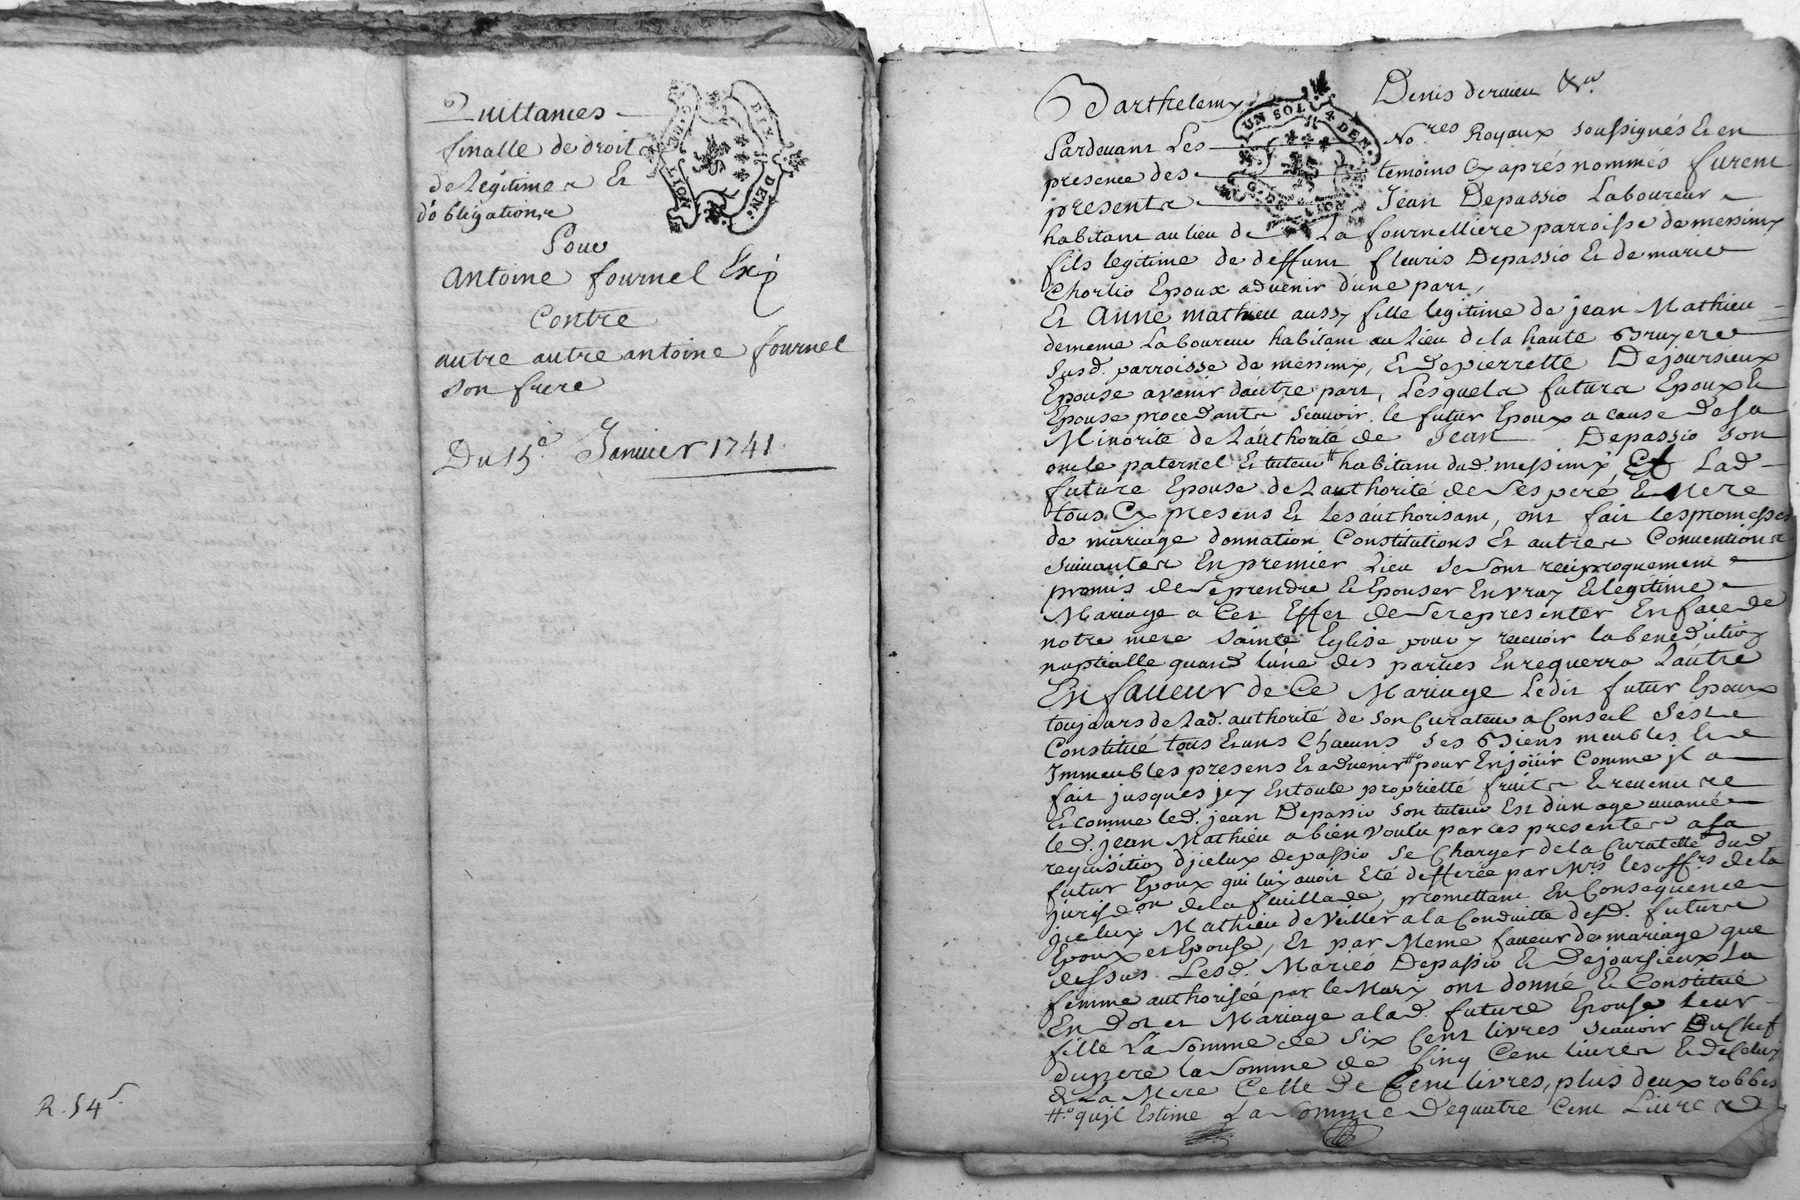 Quittances
finalle de droit
de Legitimes Et
d'obligations
Pour
Antoine fournel Exp
Contre
autre autre antoine fournel
son frere
Du 15e Janvier 1741
R. 54s
DIX DEN.
LION
UN SOL 4 DEN.
G. DE LION
Barthelemy Denis dervieu &a.
Pardevant Les Nores Royaux soussignés Et en
presence des temoins Cy aprés nommés furent
presents Jean Depassio Laboureur
habitant au lieu de La fournelliere parroisse de messimy
fils legitime de deffunt fleuris Depassio Et de marie
Chortio Epoux advenir d'une part,
Et Anne mathieu aussy fille legitime de jean Mathieu
demême Laboureur habitant au Lieu de la haute Bruyere
susd. parroisse de messimy, Et de pierrette Dejoursieux
Epouse avenir d'autre part, Lesquels futurs Epoux Et
Epouse procedants scauoir le futur Epoux a cause de sa
Minorité de L'authorité de Jean Depassio son
oncle paternel Et tuteur habitant dud. messimy Et Lad.
future Epouse de L'authorité de Ses peré Et Mere
tous Cy presens Et Les authorisant, ont fait les promesses
de mariage donnation Constitutions Et autres Conventions
suivantes En premier Lieu Se sont reciproquement
promis de Se prendre Et Epouser En vray Et legitime
Mariage a Cet Effet de Se representer En face de
notre mere Sainte Eglise pour y recevoir la benediction
nuptialle quand l'une des parties En requerra L'autre
En faueur de Ce Mariage Ledit futur Epoux
toujours de Lad. authorité de son Curateur a Conseil S'est
Constitué tous Et uns Chacuns Ses Biens meubles Et
Immeubles presens Et advenir pour En joüir Comme jl a
fait jusques jcy En toute proprietté fruits Et revenus
Et comme led. jean Depassio son tuteur Est d'un age avancé
led. jean Mathieu a bien voulu par ces presentes a la
requisition d'jcelux depassio se Charger de la Curatelle dud.
futur Epoux qui luy auoit Eté defferée par Mrs les offrs de la
jurisdon de la feuillade, promettant En Consequence
jcelux Mathieu de Veiller a la Conduitte desd. futurs
Epoux et Epouse, Et par Meme faueur de mariage que
dessus Lesd. Mariés Depassio Et Dejoursieux La
femme authorisée par le Mary ont donné Et Constitué
En Dot et Mariage a lad. future Epouse Leur
fille La Somme de Six Cent livres scauoir Du Chef
du pere la Somme de Cinq Cent livres Et de Celuy
de La Mere Celle De Cent livres, plus deux robbes
qu'jl Estime La Somme De quatre Cent Livres